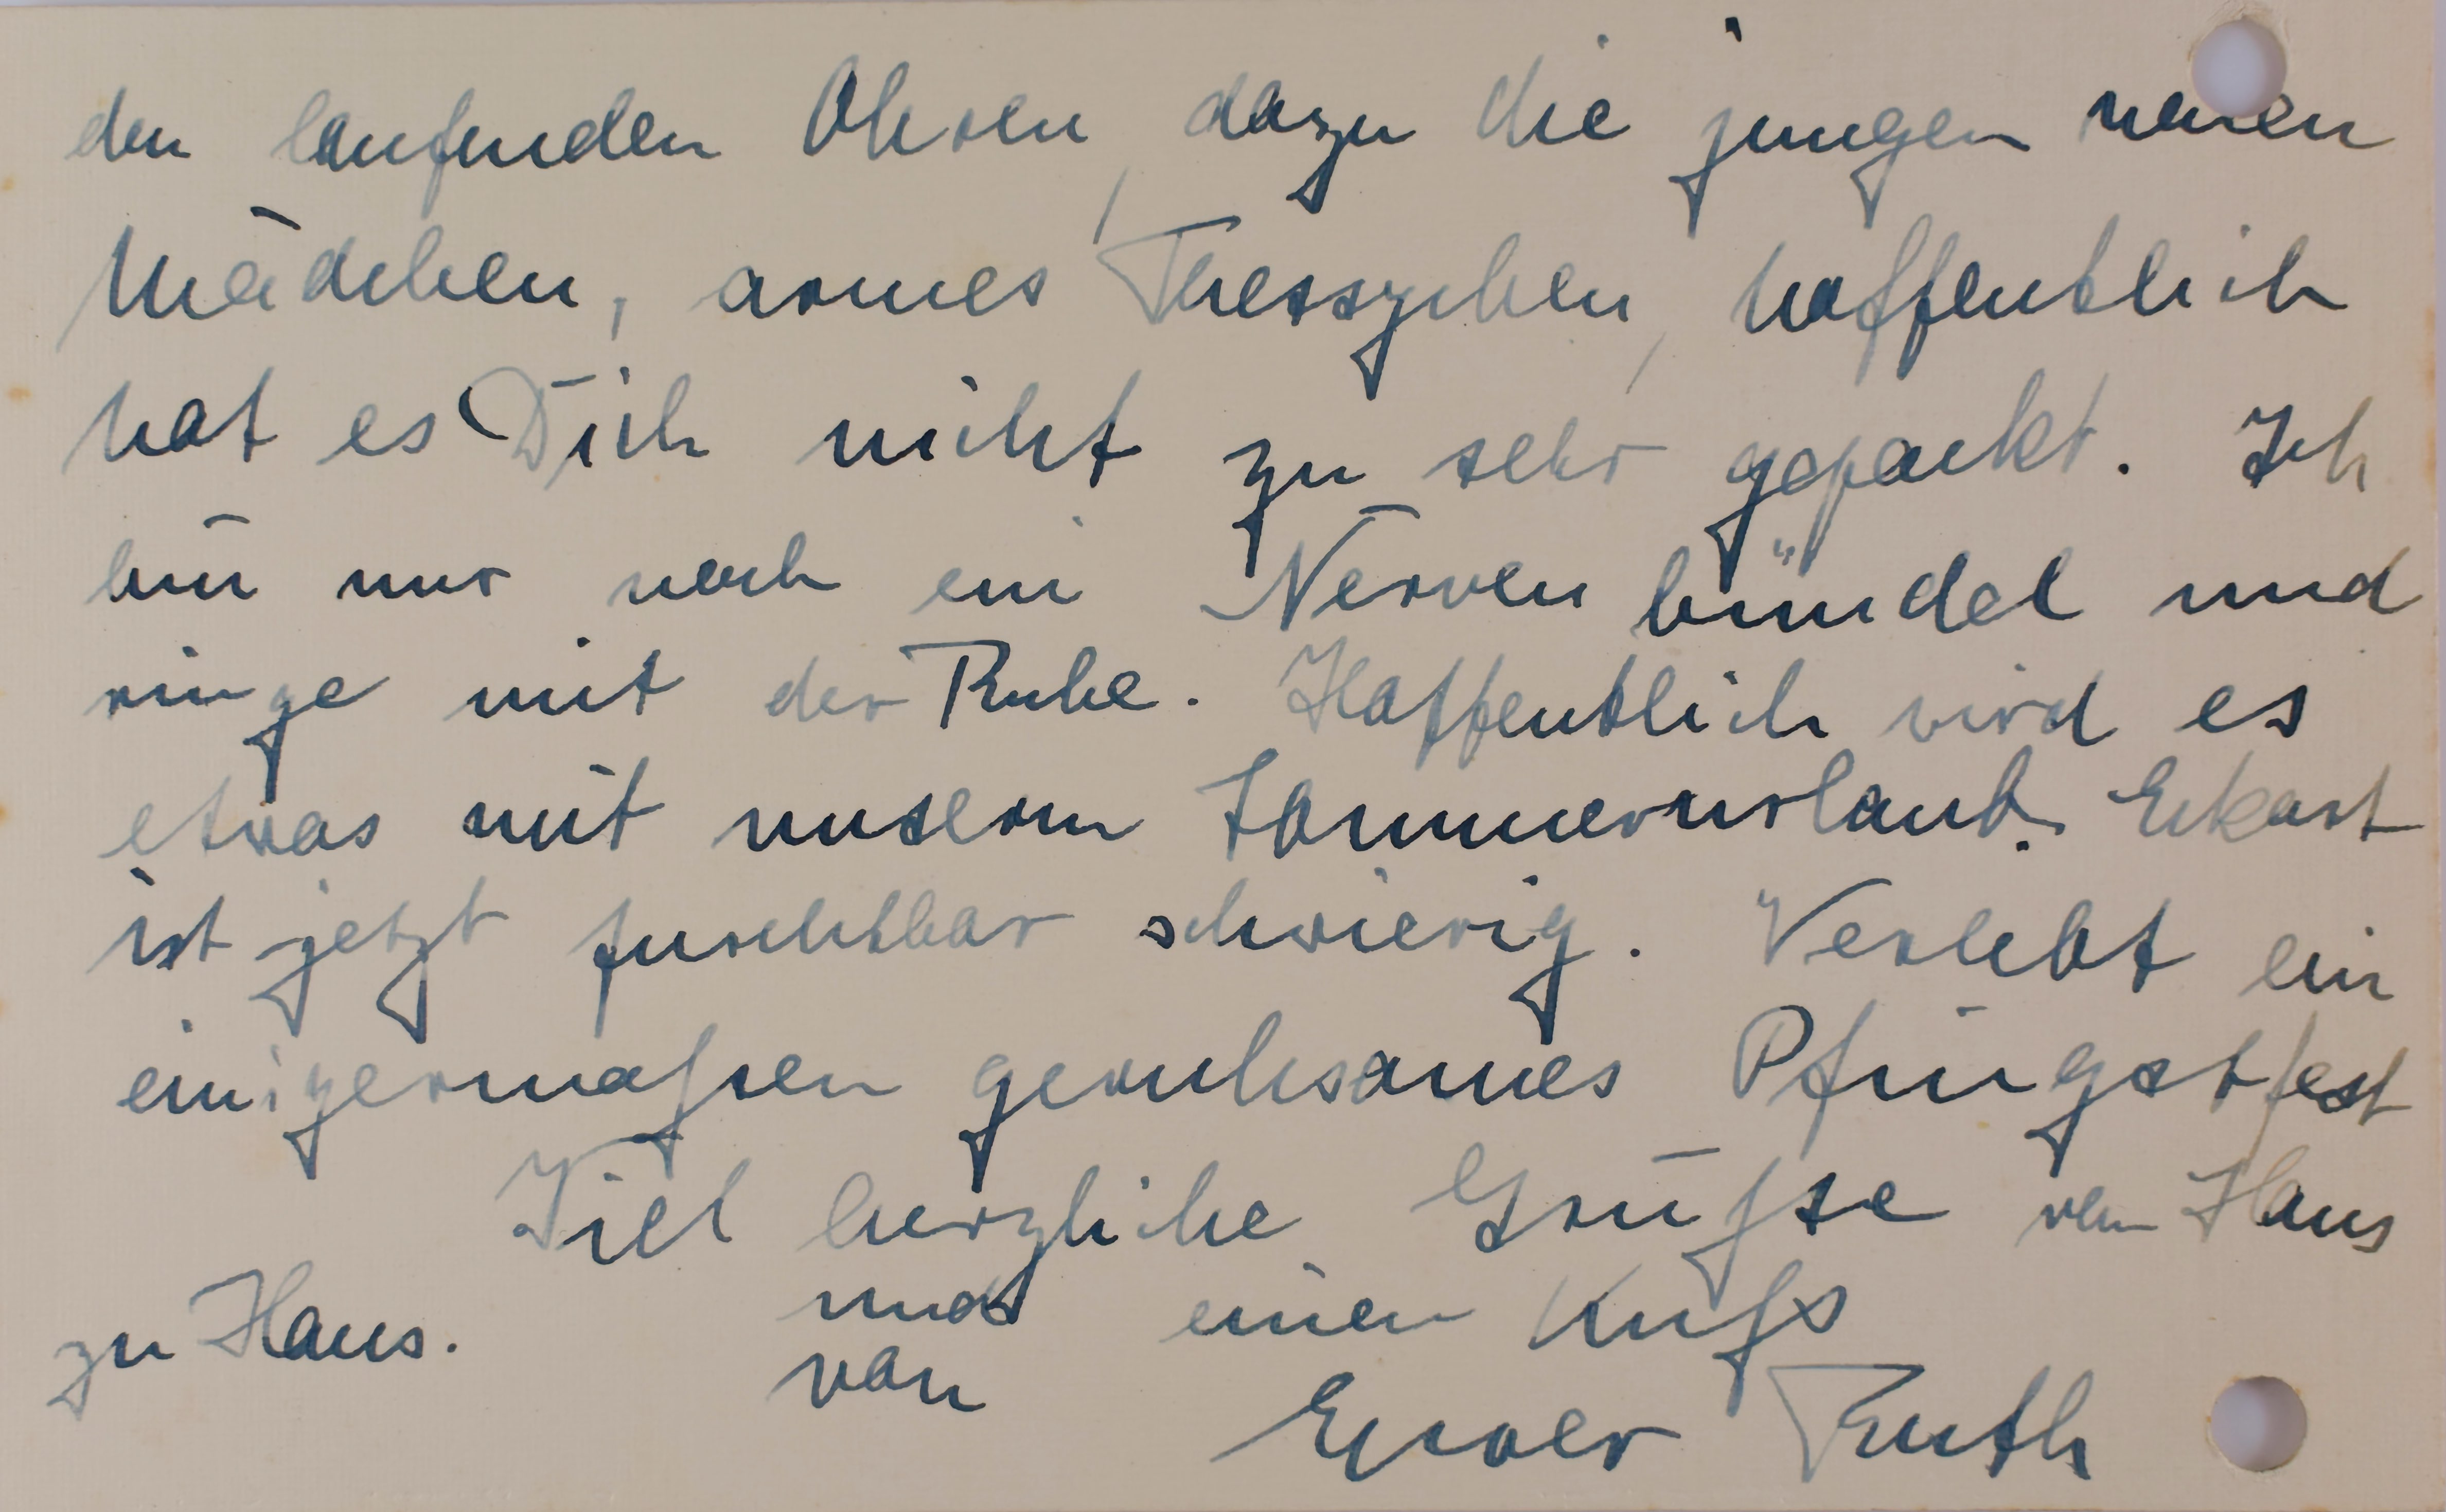 den laufenden Ohren, dazu die jungen neuen
Mädchen, armes Thesschen, hoffentlich
hat es Dich nicht zu sehr gepackt. Ich
bin nur noch ein Nervenbündel und
ringe mit der Ruhe. Hoffentlich wird es
etwas mit unserm Sommerurlaub. Eckart
ist jetzt furchtbar schwierig. Verlebt ein
einigermaßen geruhsames Pfingstfest
Viel herzliche Grüße von Haus
zu Haus. und einen Kuß
von
Eurer Ruth